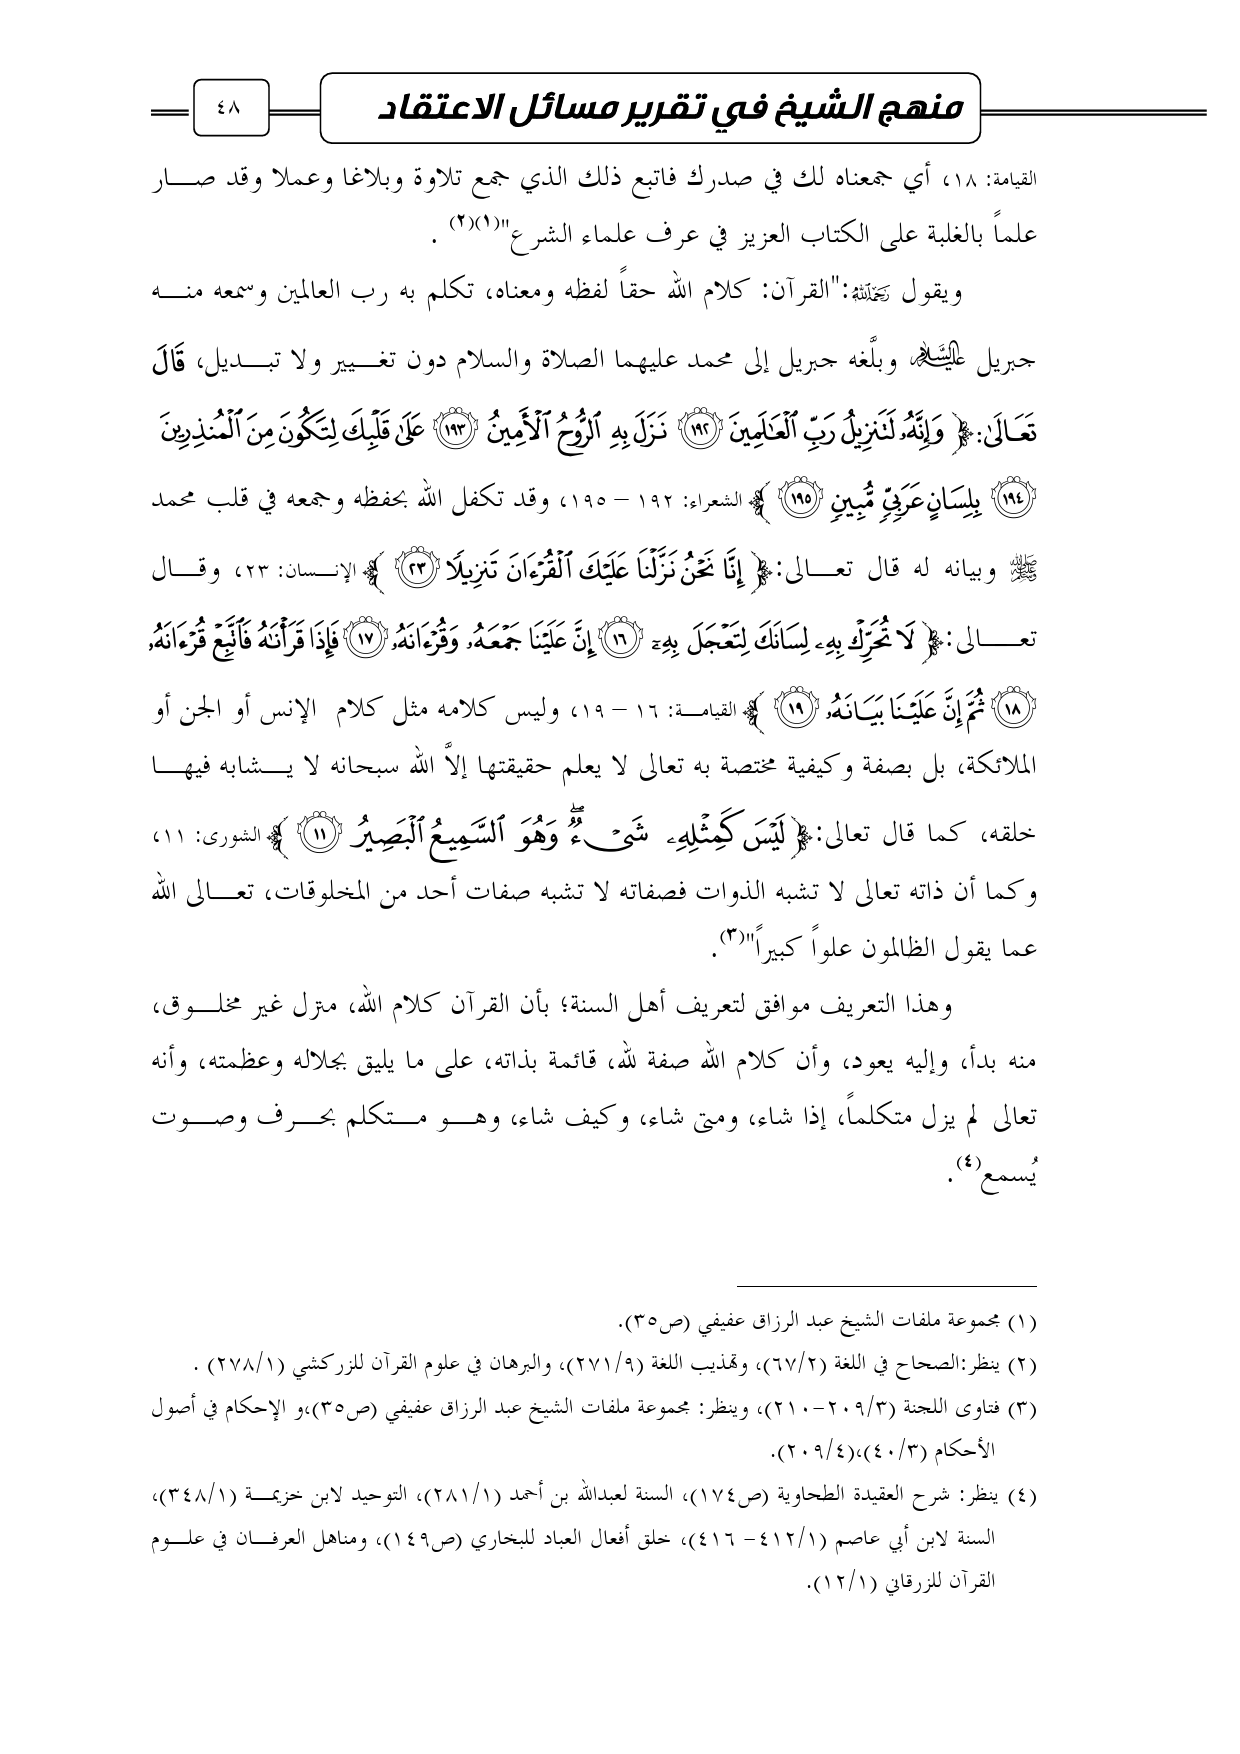 منهج الشيخ في تقرير مسائل الاعتقاد
٤٨
القيامة: ١٨، أي جمعناه لك في صدرك فاتبع ذلك الذي جمع تلاوة وبلاغا وعملا وقد صار
علماً بالغلبة على الكتاب العزيز في عرف علماء الشرع"(١)(٢) .
ويقول رحمه الله:"القرآن: كلام الله حقاً لفظه ومعناه، تكلم به رب العالمين وسمعه منه
جبريل عليه السلام وبلَّغه جبريل إلى محمد عليهما الصلاة والسلام دون تغيير ولا تبديل، قَالَ
تَعَالَىٰ: ﴿ وَإِنَّهُۥ لَتَنزِيلُ رَبِّ ٱلْعَـٰلَمِينَ ١٩٢ نَزَلَ بِهِ ٱلرُّوحُ ٱلْأَمِينُ ١٩٣ عَلَىٰ قَلْبِكَ لِتَكُونَ مِنَ ٱلْمُنذِرِينَ
١٩٤ بِلِسَانٍ عَرَبِيٍّ مُّبِينٍ ١٩٥ ﴾ الشعراء: ١٩٢ – ١٩٥، وقد تكفل الله بحفظه وجمعه في قلب محمد
ﷺ وبيانه له قال تعالى: ﴿ إِنَّا نَحْنُ نَزَّلْنَا عَلَيْكَ ٱلْقُرْءَانَ تَنزِيلًا ٢٣ ﴾ الإنسان: ٢٣، وقال
تعالى: ﴿ لَا تُحَرِّكْ بِهِۦ لِسَانَكَ لِتَعْجَلَ بِهِۦٓ ١٦ إِنَّ عَلَيْنَا جَمْعَهُۥ وَقُرْءَانَهُۥ ١٧ فَإِذَا قَرَأْنَـٰهُ فَٱتَّبِعْ قُرْءَانَهُۥ
١٨ ثُمَّ إِنَّ عَلَيْنَا بَيَانَهُۥ ١٩ ﴾ القيامة: ١٦ – ١٩، وليس كلامه مثل كلام الإنس أو الجن أو
الملائكة، بل بصفة وكيفية مختصة به تعالى لا يعلم حقيقتها إلاَّ الله سبحانه لا يشابه فيها
خلقه، كما قال تعالى: ﴿ لَيْسَ كَمِثْلِهِۦ شَىْءٌ ۖ وَهُوَ ٱلسَّمِيعُ ٱلْبَصِيرُ ١١ ﴾ الشورى: ١١،
وكما أن ذاته تعالى لا تشبه الذوات فصفاته لا تشبه صفات أحد من المخلوقات، تعالى الله
عما يقول الظالمون علواً كبيراً"(٣).
وهذا التعريف موافق لتعريف أهل السنة؛ بأن القرآن كلام الله، منزل غير مخلوق،
منه بدأ، وإليه يعود، وأن كلام الله صفة لله، قائمة بذاته، على ما يليق بجلاله وعظمته، وأنه
تعالى لم يزل متكلماً، إذا شاء، ومتى شاء، وكيف شاء، وهو متكلم بحرف وصوت
يُسمع(٤).
(١) مجموعة ملفات الشيخ عبد الرزاق عفيفي (ص٣٥).
(٢) ينظر:الصحاح في اللغة (٦٧/٢)، وتهذيب اللغة (٢٧١/٩)، والبرهان في علوم القرآن للزركشي (٢٧٨/١) .
(٣) فتاوى اللجنة (٢٠٩/٣-٢١٠)، وينظر: مجموعة ملفات الشيخ عبد الرزاق عفيفي (ص٣٥)،و الإحكام في أصول
الأحكام (٤٠/٣)،(٢٠٩/٤).
(٤) ينظر: شرح العقيدة الطحاوية (ص١٧٤)، السنة لعبدالله بن أحمد (٢٨١/١)، التوحيد لابن خزيمة (٣٤٨/١)،
السنة لابن أبي عاصم (٤١٢/١– ٤١٦)، خلق أفعال العباد للبخاري (ص١٤٩)، ومناهل العرفان في علوم
القرآن للزرقاني (١٢/١).